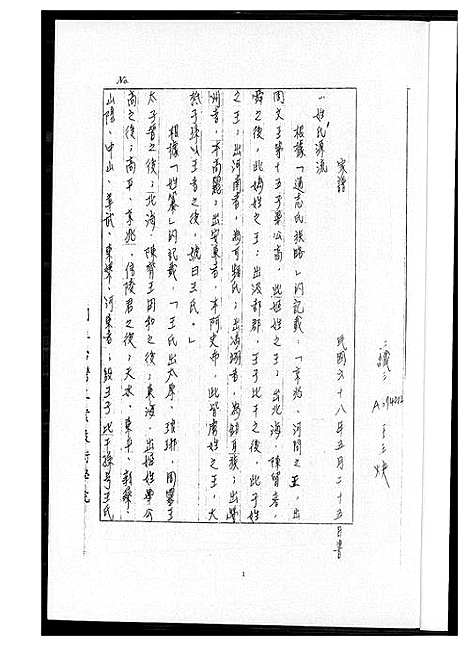 家譜　民國六十八年五月二十五日書
一、姓氏源流
根據「通志氏族略」的記載：「京兆、河間之王，出
周文王第十五子畢公高，此姬姓之王；出北海、陳留者，
舜之後，此媯姓之王；出汲郡郡，王子比干之後，此子姓
之王；出河南者，為可頻氏；出馮翊者，為鉗耳族；出營
州者，本高麗；出安東者，本阿史那，此皆虜姓之王，大
抵子孫以王者之後，號曰王氏。」
根據「姓纂」的記載「王氏出太原、琅琊，周靈王
太子晉之後；北海、陳留王田和之後；東海，出姬姓畢公
高之後；高平、京兆，信陵君之後；天水、東平、新蔡、
山陽、中山、章武、東萊、河東者；殷王子比干孫号王氏
No.
A
1